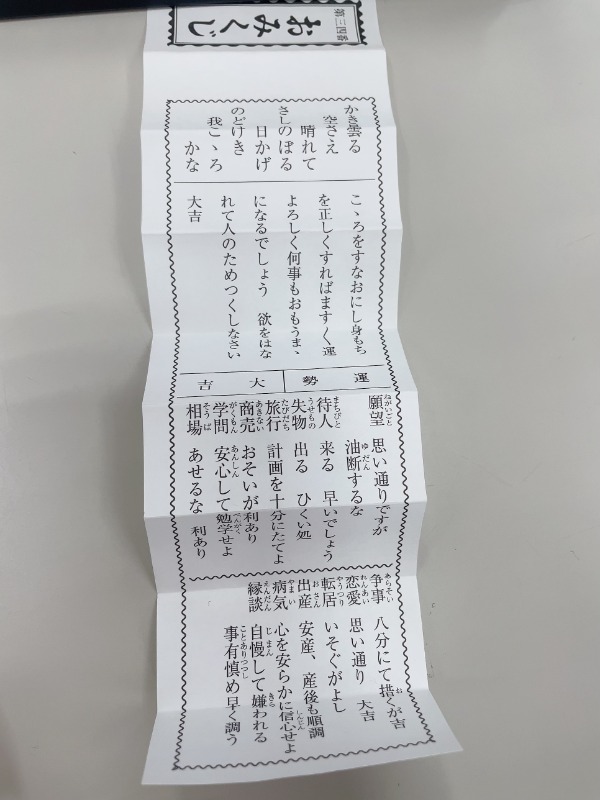 第三四番
おみくじ
かき曇る
空さえ
晴れて
さしのぼる
日かげ
のどけき
我こゝろ
かな
こゝろをすなおにし身もち
を正しくすればますく運
よろしく何事もおもうまゝ
になるでしょう　欲をはな
れて人のためつくしなさい
大吉
運勢　大吉
願望　思い通りですが
油断するな
待人　来る　早いでしょう
失物　出る　ひくい処
旅行　計画を十分にたてよ
商売　おそいが利あり
学問　安心して勉学せよ
相場　あせるな　利あり
争事　八分にて措くが吉
恋愛　思い通り　大吉
転居　いそぐがよし
出産　安産、産後も順調
病気　心を安らかに信心せよ
縁談　自慢して嫌われる
事有慎め早く調う